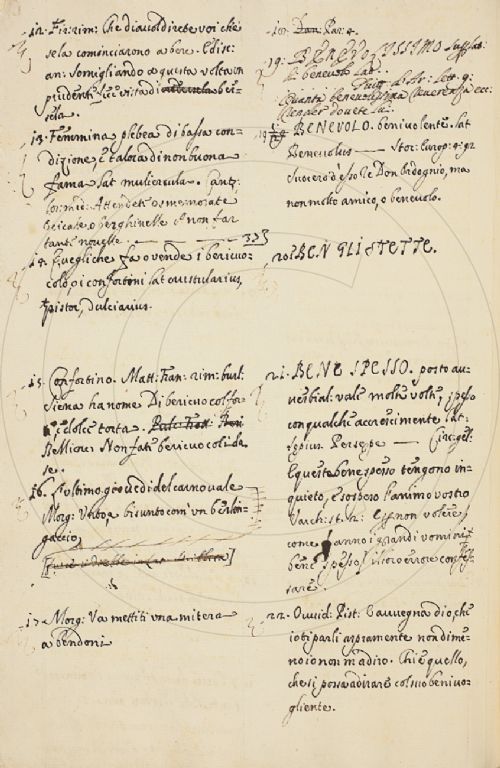 12. Fir: rim: Che diavol direte voi che
se la cominciarono a bere. Ed in
an: Somigliando a questa volta in
di
sela.
13. Femmina plebea di bassa con-
dizione, e talora di non buona
fama Lat muliercula.
lor: mid: Attendete
e berghinelle e non far
tante novelle. 333
14. Quegli che fa o vende i bericuo-
coli, o i confortini Lat crustularius,
pistor, dulciarius.
15. Confortino. Matt: Fran: rim: burl:
Siena ha nome Di bericuocol for-
te, e dolce torta.
Bellione Non fate bericuocoli da
16. L'ultimo giovedi del carnovale
Morg: Unto, e bisunto com'un berlin-
gaccio
17. Morg: Va mettiti una mitera
a bendoni
18. Dan: Par: 4.
19. BENEVOLISSIMO Superlat:
di benevolo Lat:
Quanta benevolissima
BENEVOLO. benivolente. Lat
Benevolus — Stor: Europ: 4: 92
Suocero d'esso Re Don Ordognio, ma
non molto amico, o benevolo.
20. BENGLISTETTE.
21. BENE SPESSO. posto au-
verbial: vale molte volte, spesso
con qualche accrescimento Lat:
sepius Persepe — Circ: gel:
E queste bene spesso tengono in-
quieto, e sospeso l'animo vostro
Varch: st: 12: E se non volere
come fanno i grandi uomini
bene spesso, il loro errore confes-
sare.
22. Ovvid: Pist: E avvegna dio, che
io ti parli aspramente non dime-
no io non m'adiro. Chi è quello,
che si possa adirare col suo benivo-
gliente.